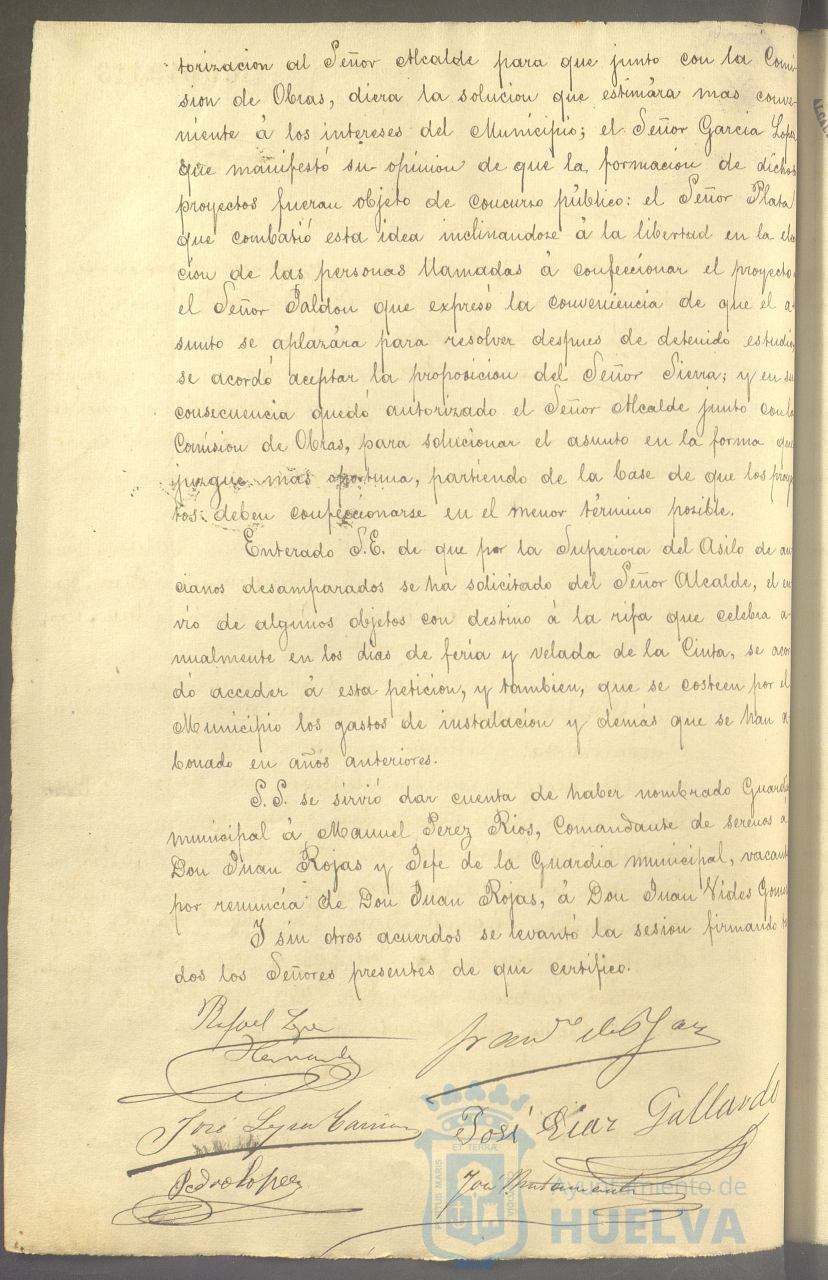 torizacion al Señor Alcalde para que junto con la Comi-
sion de Obras, diera la solucion que estimára mas conve-
niente á los intereses del Municipio; el Señor Garcia Lopez
que manifestó su opinion de que la formacion de dichos
proyectos fueran objeto de concurso público: el Señor Plata
que combatió esta idea inclinandose á la libertad en la elec
cion de las personas llamadas á confeccionar el proyecto
el Señor Jaldon que expresó la conveniencia de que el a-
sunto se aplazára para resolver despues de detenido estudio,
se acordó aceptar la proposicion del Señor Sierra; y en su
consecuencia quedó autorizado el Señor Alcalde junto con la
Comision de Obras, para solucionar el asunto en la forma que
juzgue mas oportuna, partiendo de la base de que los proyec
tos deben confeccionarse en el menor término posible.
Enterado S.E. de que por la Superiora del Asilo de an
cianos desamparados se ha solicitado del Señor Alcalde, el en
vio de algunos objetos con destino á la rifa que celebra a-
nualmente en los dias de feria y velada de la Cinta, se acor
dó acceder á esta peticion, y tambien, que se costeen por el
Municipio los gastos de instalacion y demás que se han a-
bonado en años anteriores.
S.S. se sirvió dar cuenta de haber nombrado Guardia
municipal á Manuel Perez Rios, Comandante de serenos á
Don Juan Rojas y Jefe de la Guardia municipal, vacante
por renuncia de Don Juan Rojas, á Don Juan Vides Gomez
Y sin otros acuerdos se levantó la sesion firmando to
dos los Señores presentes de que certifico.
Rafael Lopez
Hernandez
José
José Diaz Gallardo
Pedro Lopez
José
ET TERRÆ
PORTUS MARIS
CUSTODIA
Ayuntamiento de
HUELVA